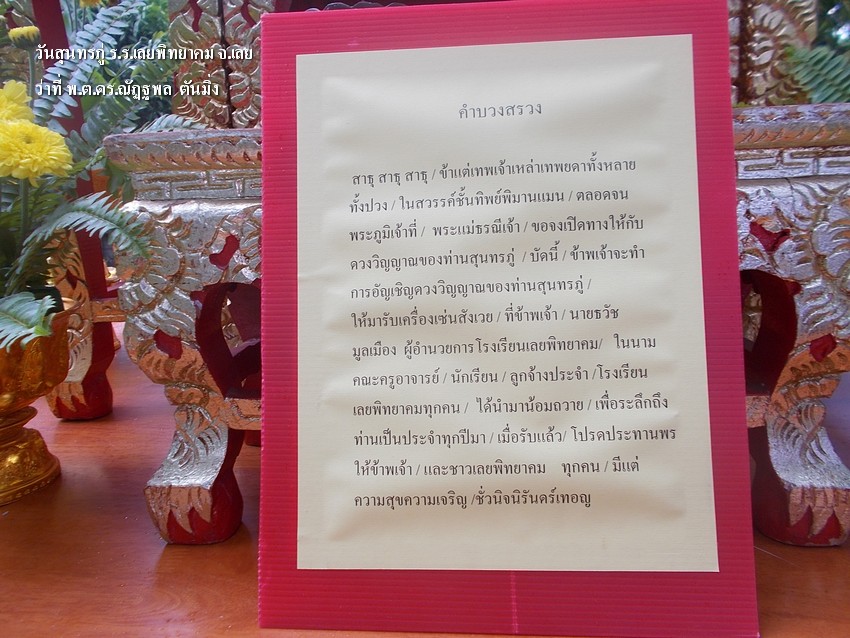 วันสุนทรภู่ ร.ร.เลยพิทยาคม จ.เลย
ว่าที่ พ.ต.ดร.ณัฏฐพล ตันมิ่ง
คำบวงสรวง
สาธุ สาธุ สาธุ / ข้าแต่เทพเจ้าเหล่าเทพยดาทั้งหลาย
ทั้งปวง / ในสวรรค์ชั้นทิพย์พิมานแมน / ตลอดจน
พระภูมิเจ้าที่ / พระแม่ธรณีเจ้า / ขอจงเปิดทางให้กับ
ดวงวิญญาณของท่านสุนทรภู่ / บัดนี้ / ข้าพเจ้าจะทำ
การอัญเชิญดวงวิญญาณของท่านสุนทรภู่ /
ให้มารับเครื่องเซ่นสังเวย / ที่ข้าพเจ้า / นายธวัช
มูลเมือง ผู้อำนวยการโรงเรียนเลยพิทยาคม/ ในนาม
คณะครูอาจารย์ / นักเรียน / ลูกจ้างประจำ /โรงเรียน
เลยพิทยาคมทุกคน / ได้นำมาน้อมถวาย / เพื่อระลึกถึง
ท่านเป็นประจำทุกปีมา / เมื่อรับแล้ว/ โปรดประทานพร
ให้ข้าพเจ้า / และชาวเลยพิทยาคม ทุกคน / มีแต่
ความสุขความเจริญ /ชั่วนิจนิรันดร์เทอญ